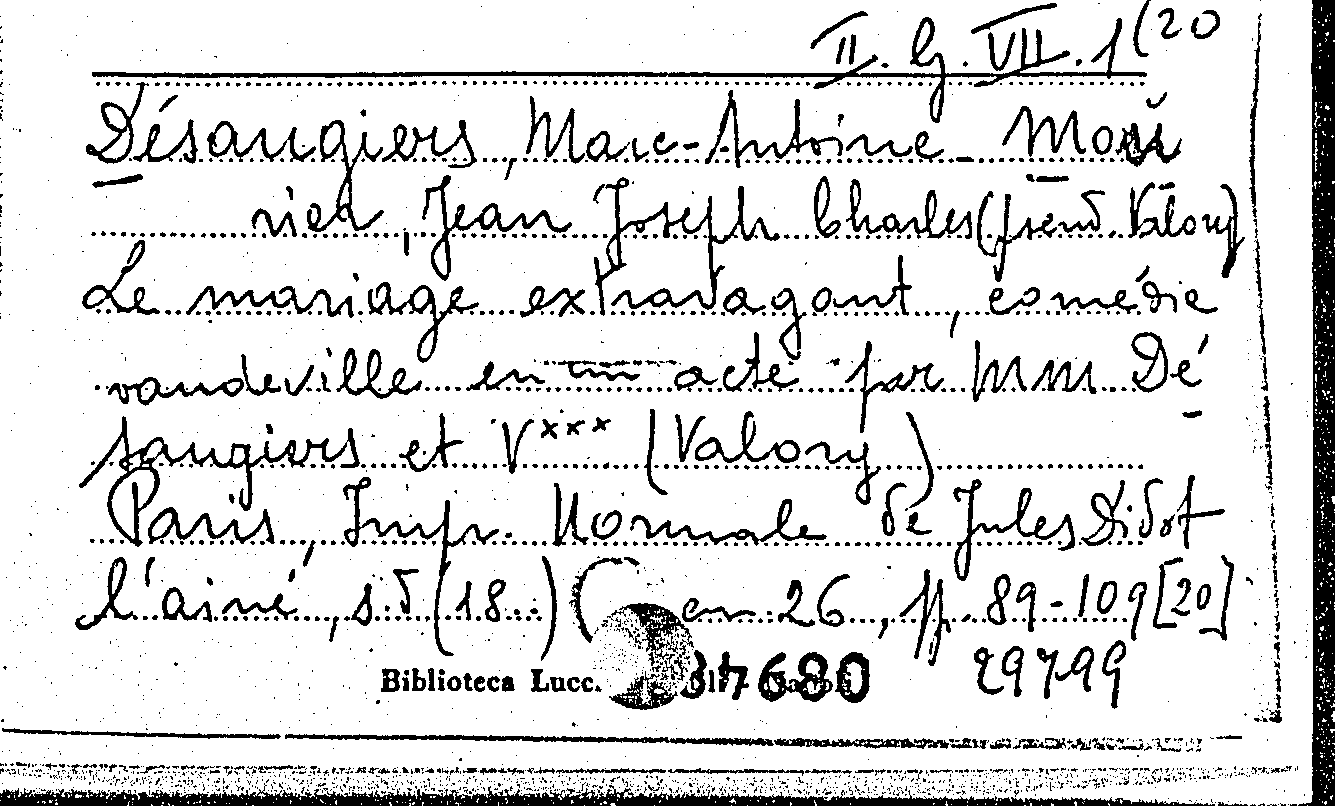 II. G. VII. 1(20
Désaugiers, Marc-Antoine - Mou
rier, Jean Joseph Charles (pseud. Valory)
Le mariage extravagant, comédie
vaudeville en un acte par MM Dé
saugiers et V*** (Valory)
Paris, Impr. Normale de Jules Didot
l'ainé, s.d (18..) cm. 26, pp. 89-109 [20]
Biblioteca Lucc. 34680 29799